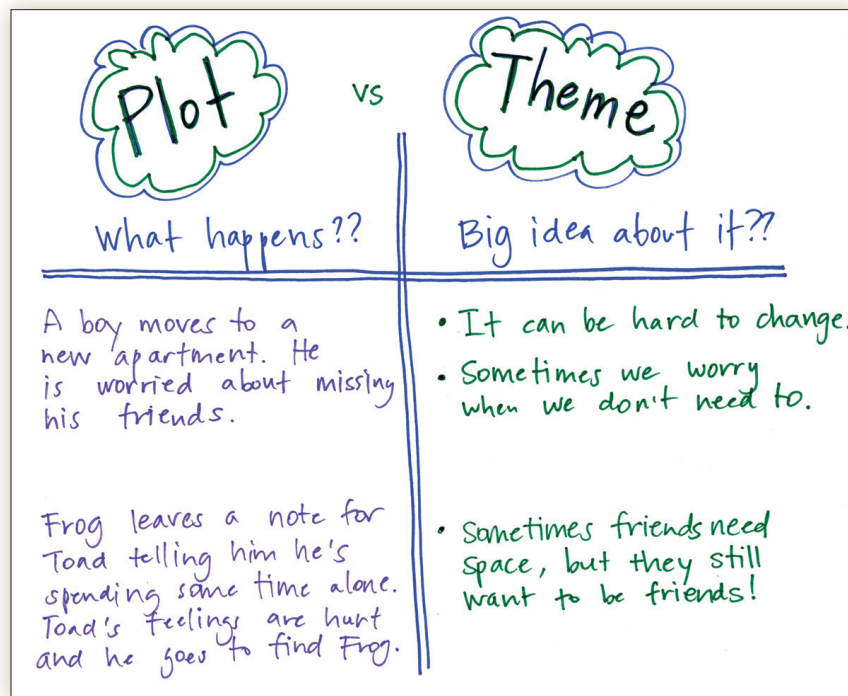 Plot vs Theme
What happens??
Big idea about it??
A boy moves to a
new apartment. He
is worried about missing
his friends.
• It can be hard to change.
• Sometimes we worry
when we don't need to.
Frog leaves a note for
Toad telling him he's
spending some time alone.
Toad's feelings are hurt
and he goes to find Frog.
• Sometimes friends need
space, but they still
want to be friends!